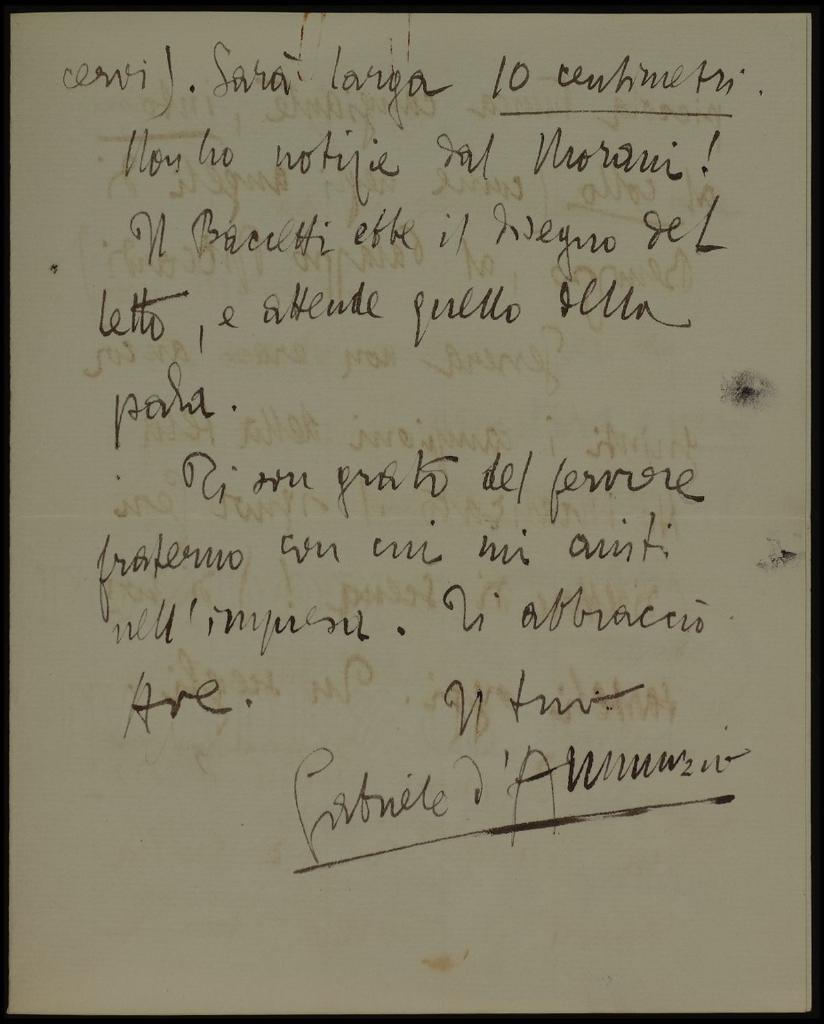 cervi). Sarà larga 10 centimetri.
Non ho notizie dal Morani!
Il Baccetti ebbe il disegno del
letto, e attende quello della
Ti son grato del fervore
fraterno con cui mi aiuti
nell'impresa. Ti abbraccio
Ave. Il tuo
Gabriele d'Annunzio